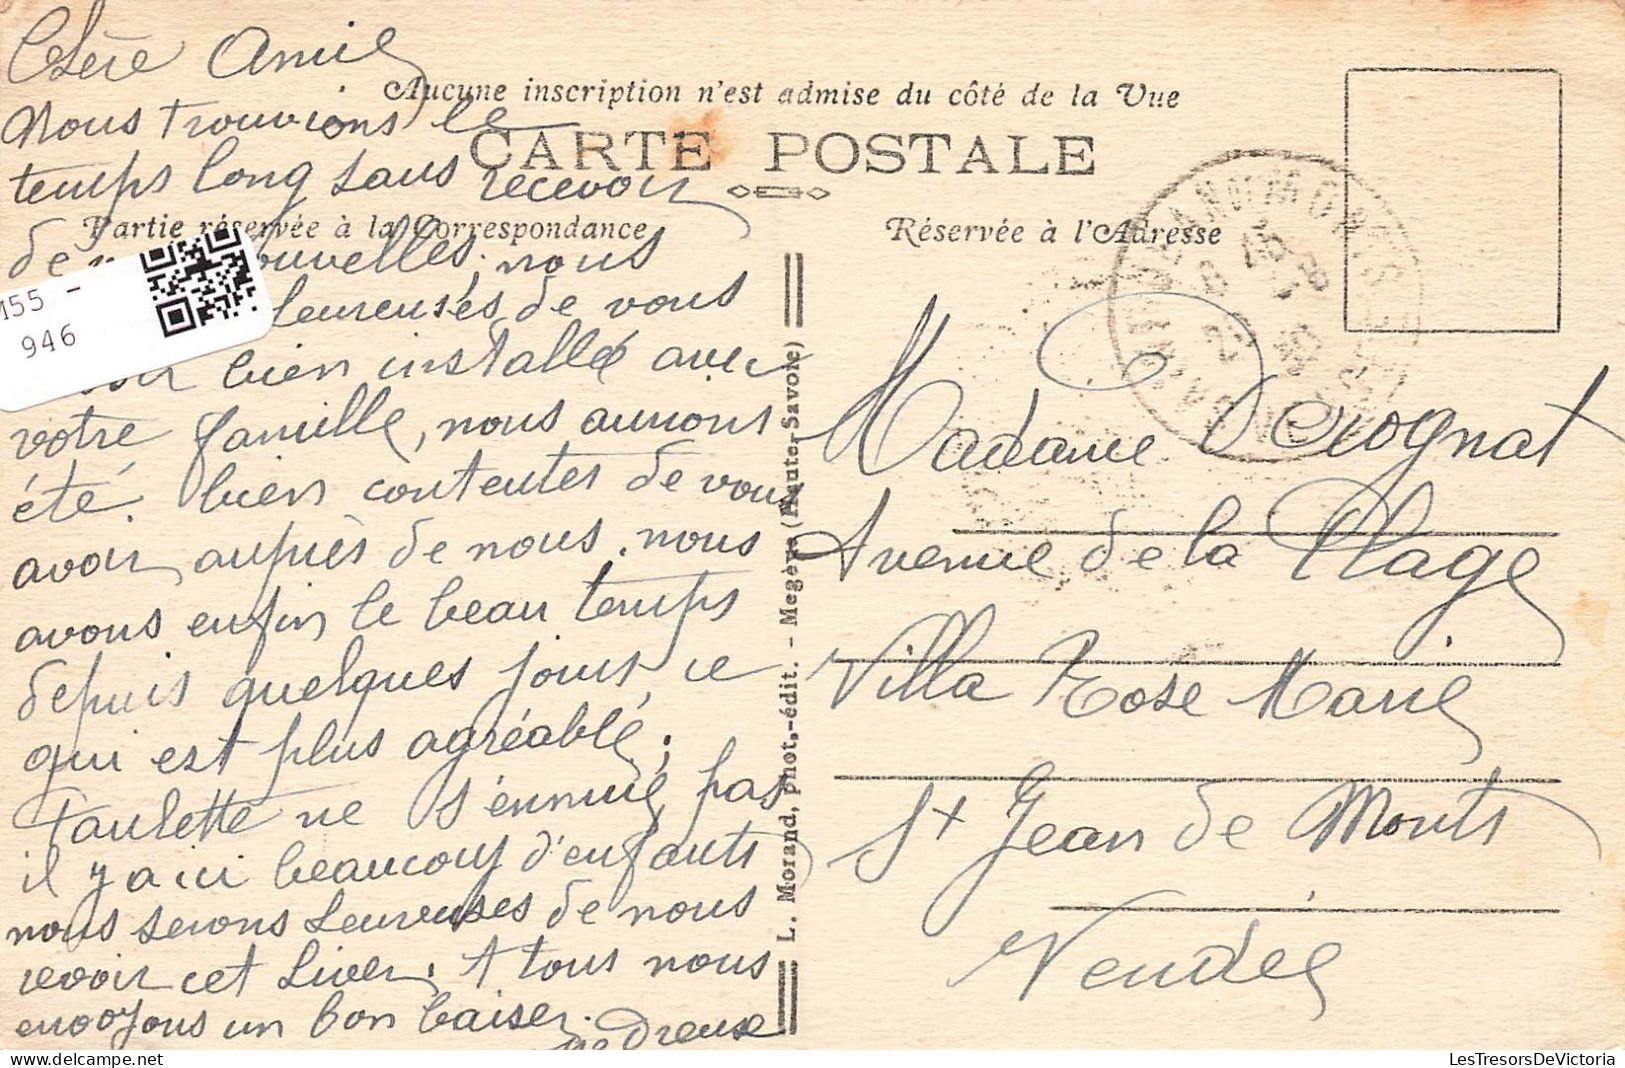 Chère Amie
Aucune inscription n'est admise du côté de la Vue
CARTE POSTALE
Partie réservée à la Correspondance
Réservée à l'Adresse
Nous trouvions le
temps long sans recevoir
de nouvelles, nous
heureuses de vous
bien installé avec
votre famille, nous aurions
été bien contentes de vous
avoir auprès de nous. nous
avons enfin le beau temps
depuis quelques jours ce
qui est plus agréable,
Paulette ne s'ennuie pas
il y a ici beaucoup d'enfants
nous serons heureuses de nous
revoir cet hiver. A tous nous
envoyons un bon baiser.
M55 -
946
L. Morand, phot.-édit. - Megève (Haute-Savoie)
Madame Crognat
Avenue de la Plage
Villa Rose Marie
St Jean de Monts
Vendée
LesTresorsDeVictoria.com